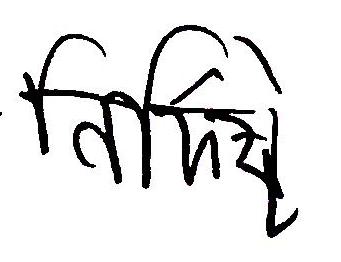 নির্দিষ্ট